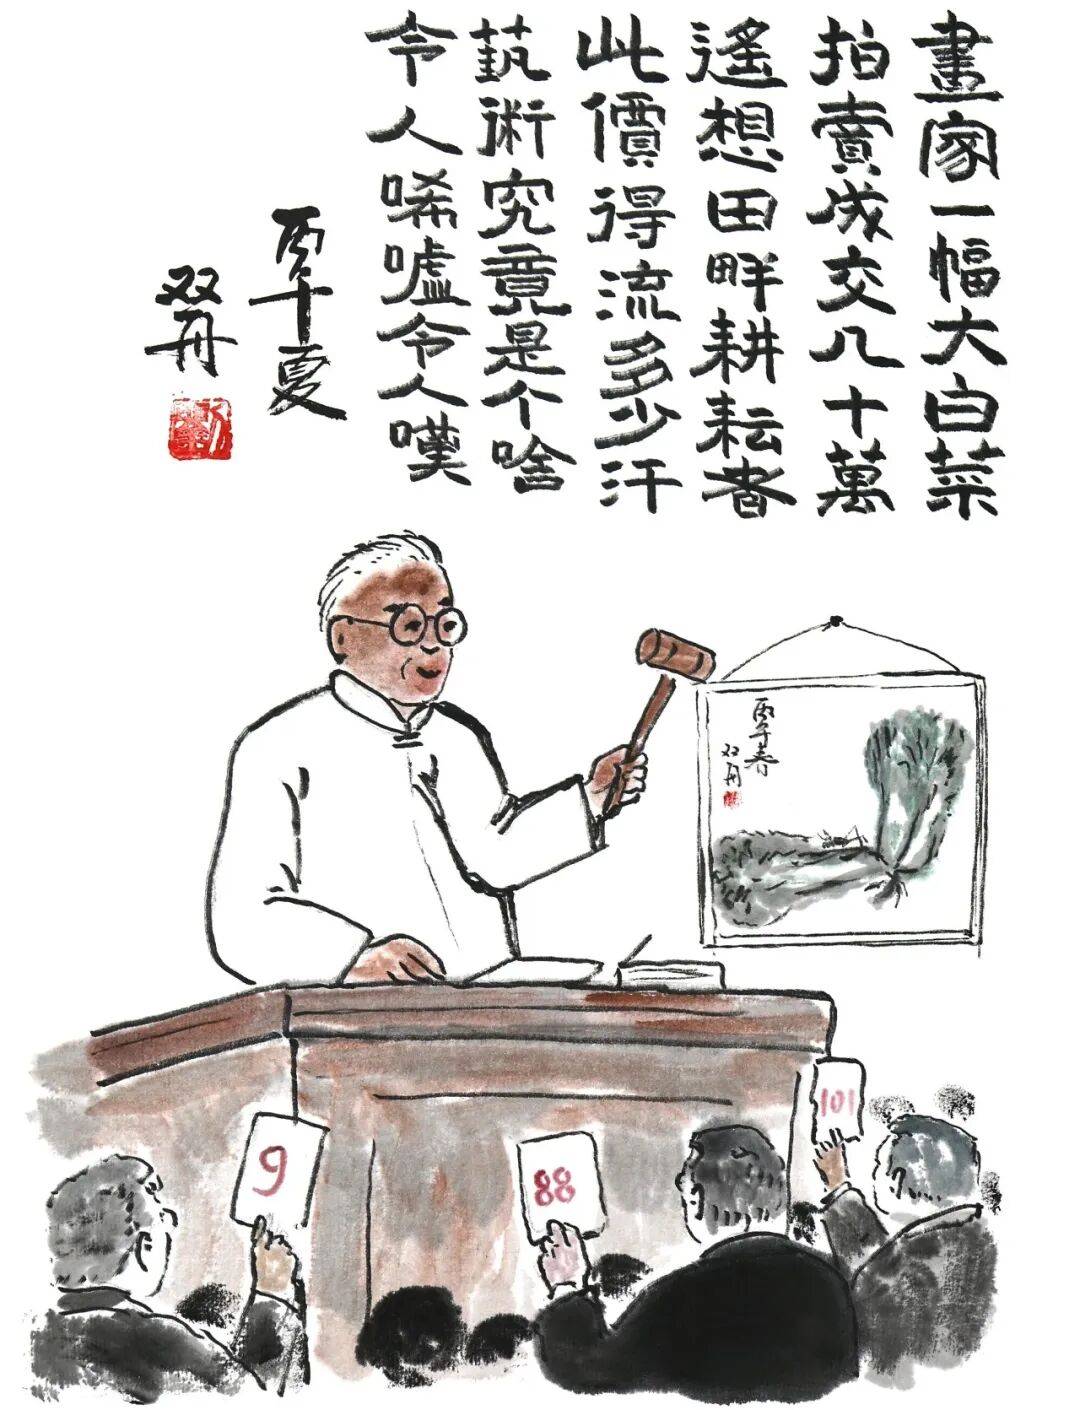 畫家一幅大白菜
拍賣成交几十萬
遙想田畔耕耘者
此價得流多少汗
埶術究竟是个啥
令人唏嘘令人嘆
丙午夏
双舟
丙午春
双舟
9
88
101